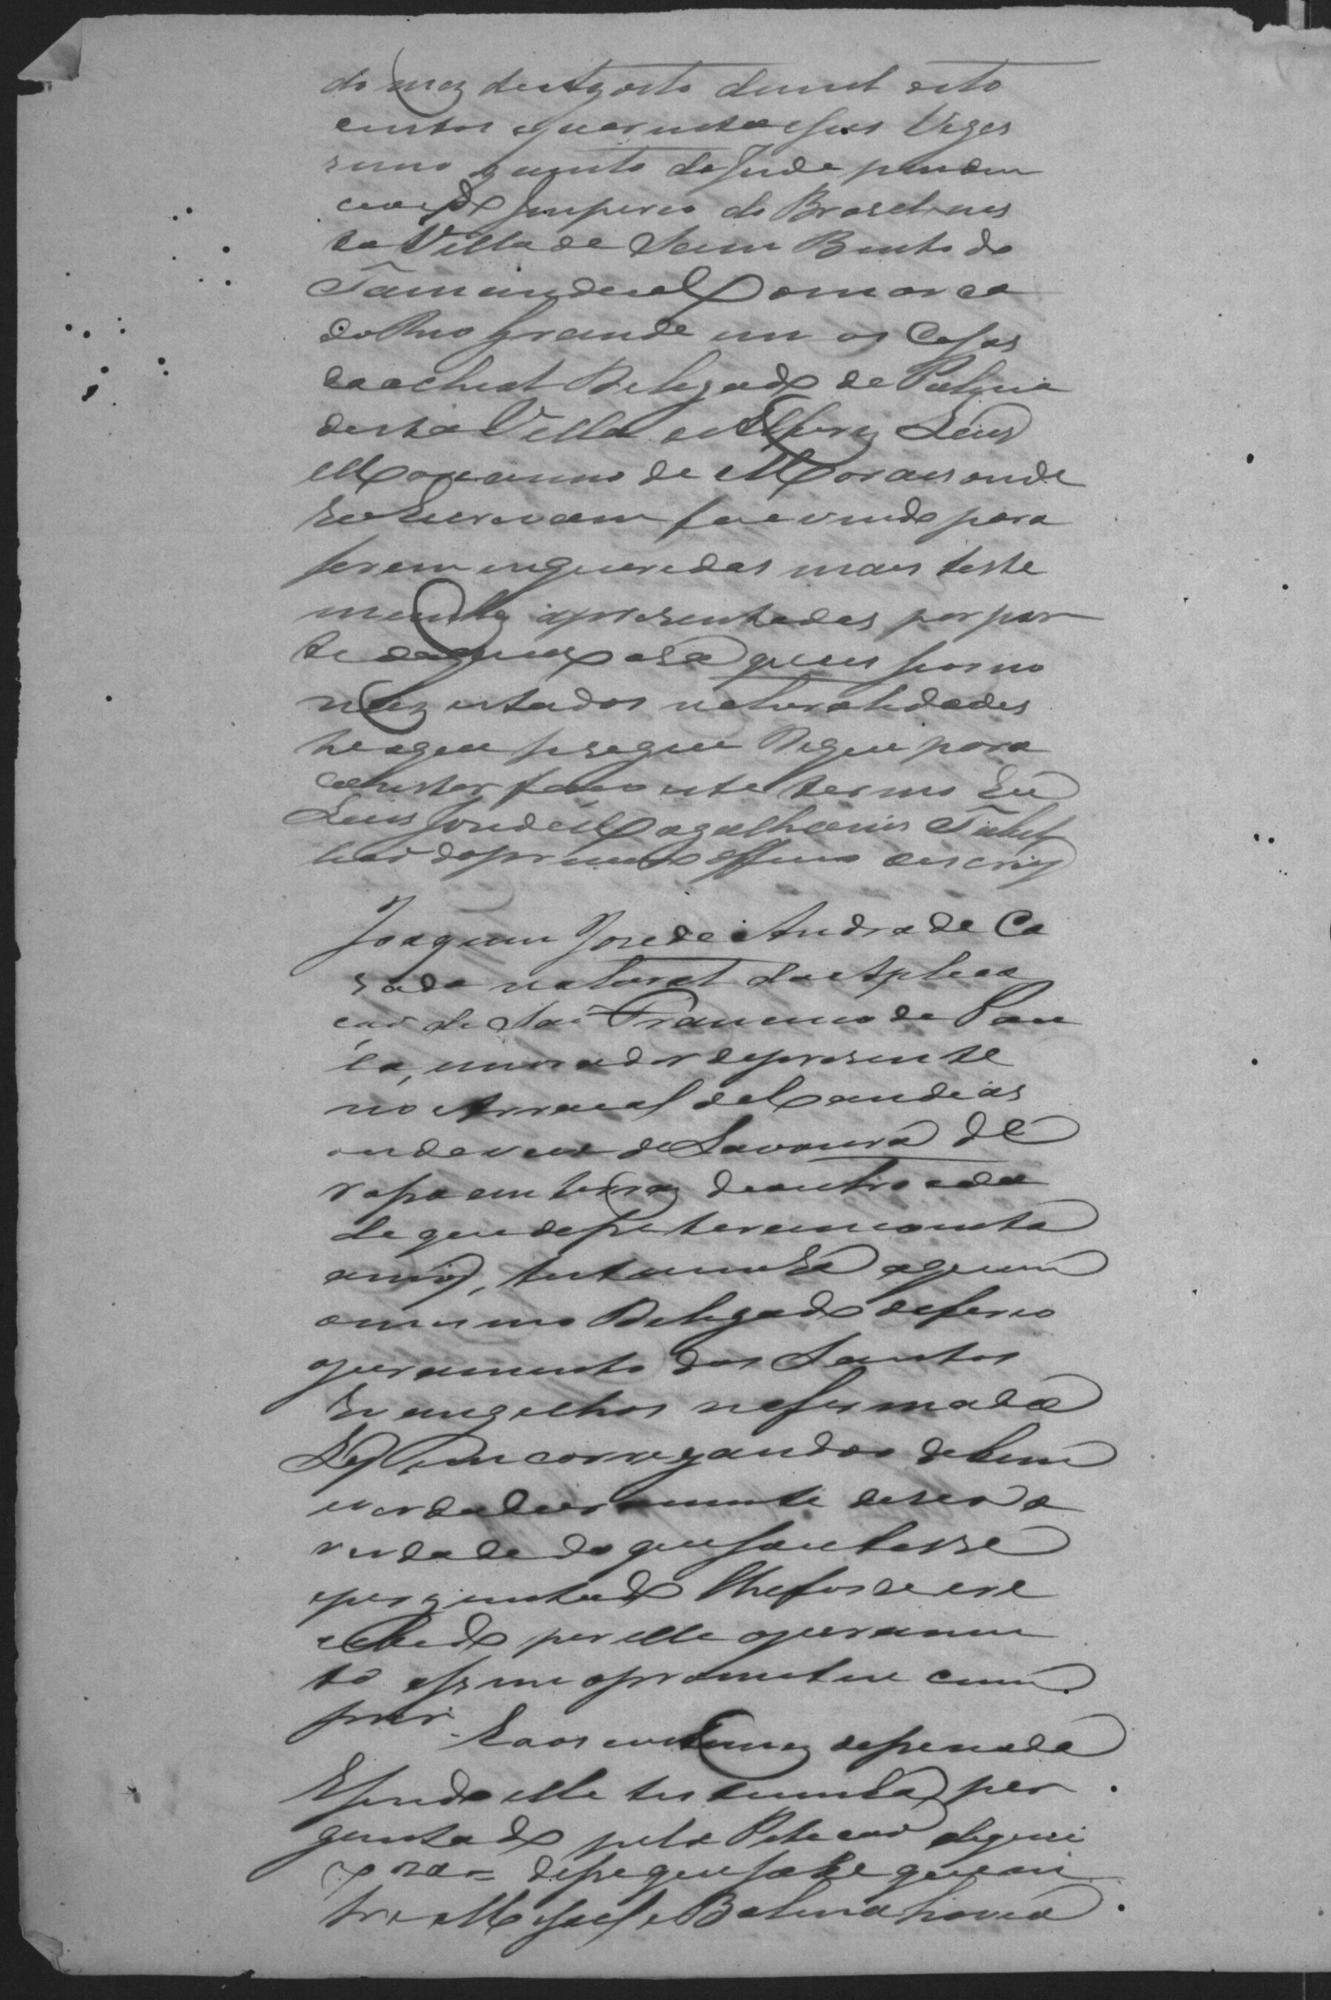 do mez de Agosto de mil oito
centos e quarenta e seis Viges
simo quinto da Independen
cia e do Imperio do Brasil nes
ta Villa de Sam Bento do
Tamanduá Comarca
do Rio Grande em as Casas
do actual Delegado de Policia
desta Villa o Alferes Luis
Marianno de Moraes onde
Eu Escrivam fui vindo para
serem inqueridas mais teste
munhas apresentadas por par
te da queixosa e quais seos no
mes estados naturalidades
he o que se segue De que para
constar faço este termo Eu
Luis José de Magalhaens Tabel
liao do primeiro officio o escrevy
Joaquim José de Andrade Ca
sado natural da Aplica
ção de São Francisco de Pau
la, morador de presente
no Arraial de Candeias
onde vive de Lavoura de
rossa em terras de
de que disse ter cincoenta
annos, testemunha a quem
o mesmo Delegado deferio
o juramento dos Santos
Evangelhos na forma da
Ley, encarregando de bem
verdadeiramente diser a
verdade do que soubesse
e perguntado lhe fosse e re
cebido por elle o juramen
to assim o prometeu cum
prir.
E aos costumes disse nada
E sendo elle testemunha per
guntado pela Peticao de quei
xosa = disse que sabe que en
tre Balbina havia